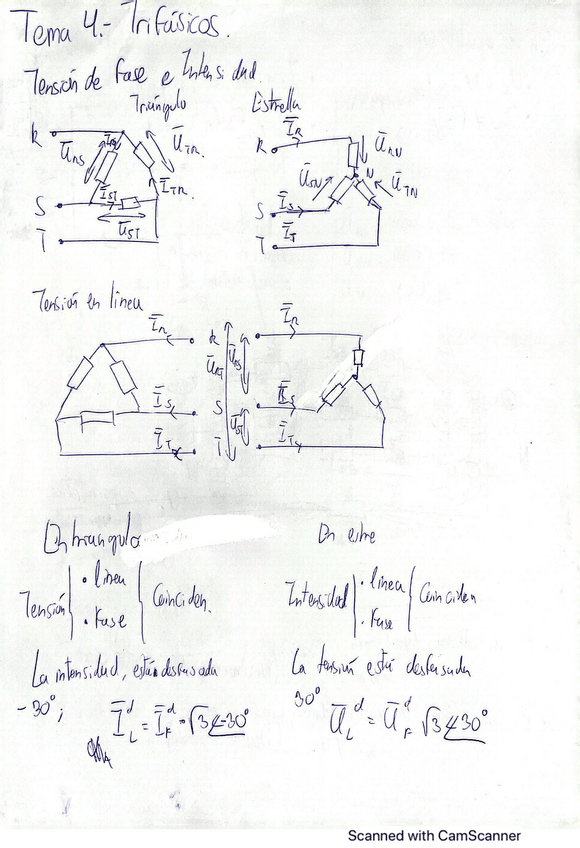 Tema 4.- Trifásicos.
Tensión de fase e Intensidad
Triángulo
Estrella
R
U̅RS
U̅TR
I̅TR
S
I̅ST
U̅ST
T
R
I̅R
U̅RN
U̅SN
N
U̅TN
S
I̅S
T
I̅T
Tensión en línea
I̅R
I̅S
I̅T
R
S
T
U̅RS
U̅ST
I̅R
I̅T
En triangulo
Tensión
• línea
• Fase
Coinciden.
La intensidad, están desfasada
-30°;
I̅L^d = I̅F^d · √3 ∠-30°
Intensidad
• línea
• Fase
Coinciden
La tensión está desfasada
30°
U̅L^d = U̅F^d √3 ∠30°
Scanned with CamScanner